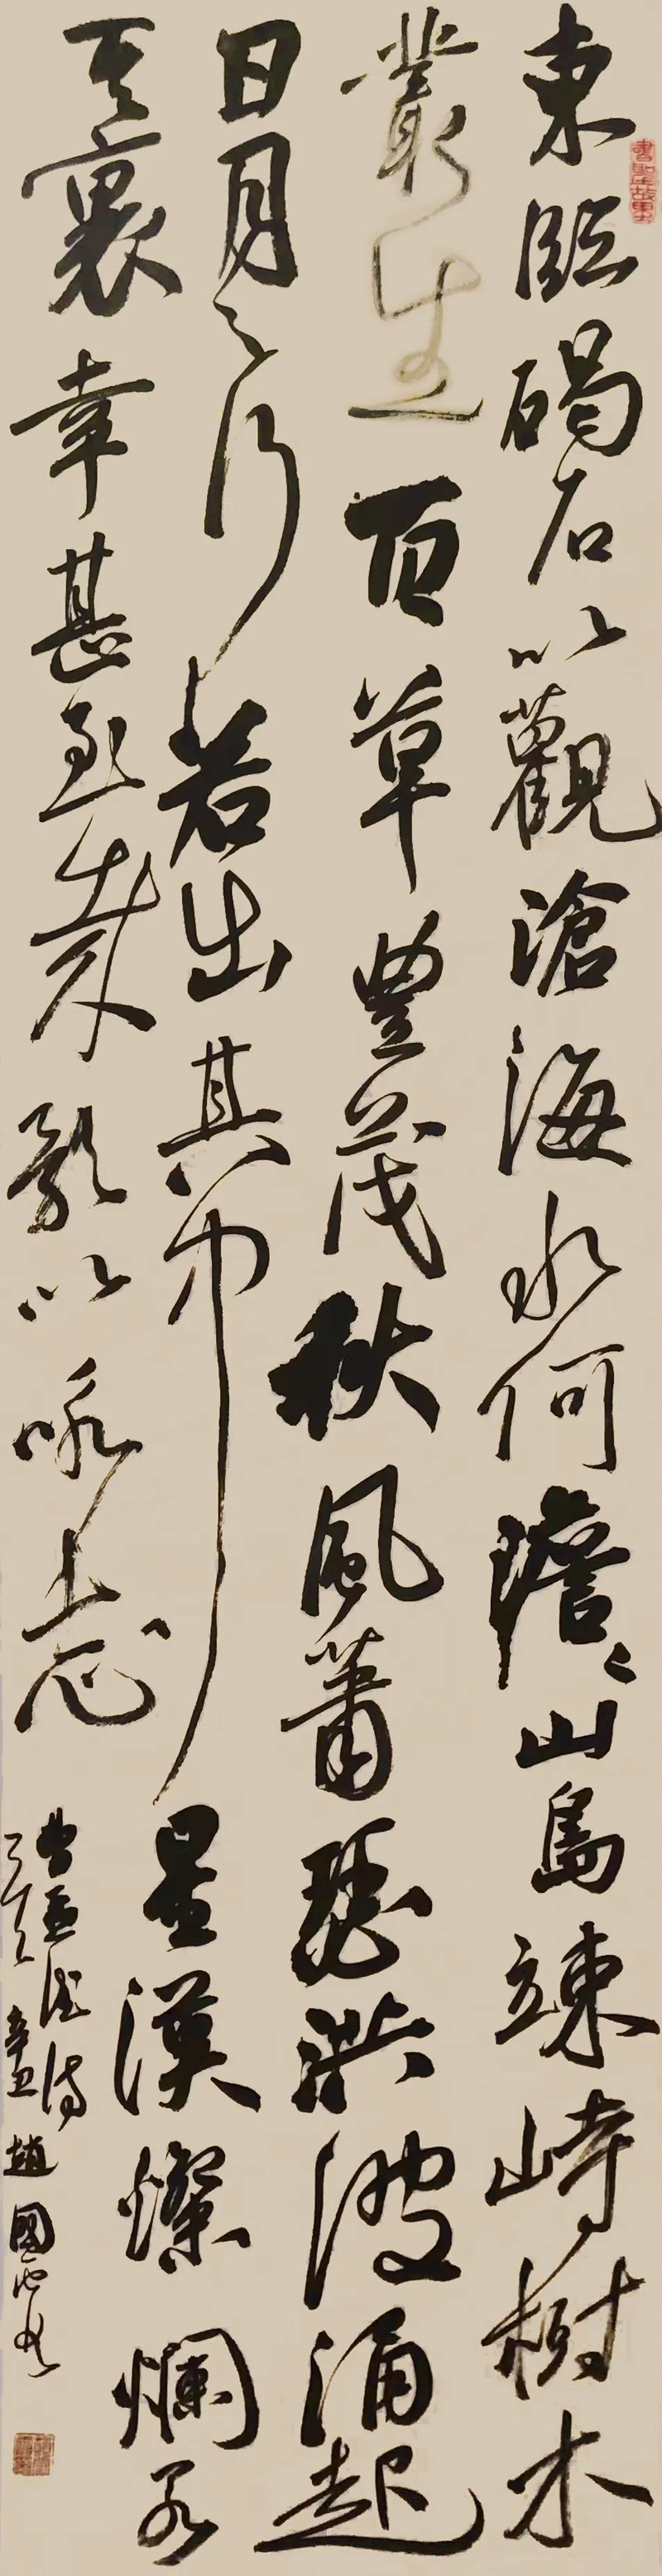 東臨碣石以觀滄海水何澹〻山島竦峙樹木
叢生百草豐茂秋風蕭瑟洪波涌起
日月之行若出其中星漢燦爛若
其裏幸甚至哉歌以咏志
曹孟德詩
辛丑趙國